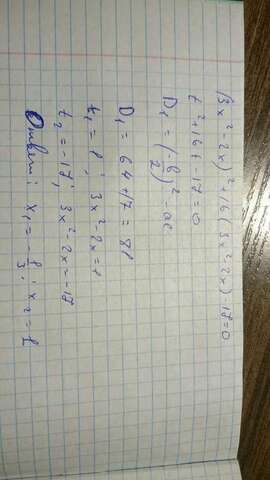 (3x²-2x)²+16(3x²-2x)-17=0
t²+16t-17=0
D₁=(-b/2)²-ac
D₁=64+17=81
t₁=1; 3x²-2x=1
t₂=-17; 3x²-2x=-17
Ответ: x₁=-1/3; x₂=1